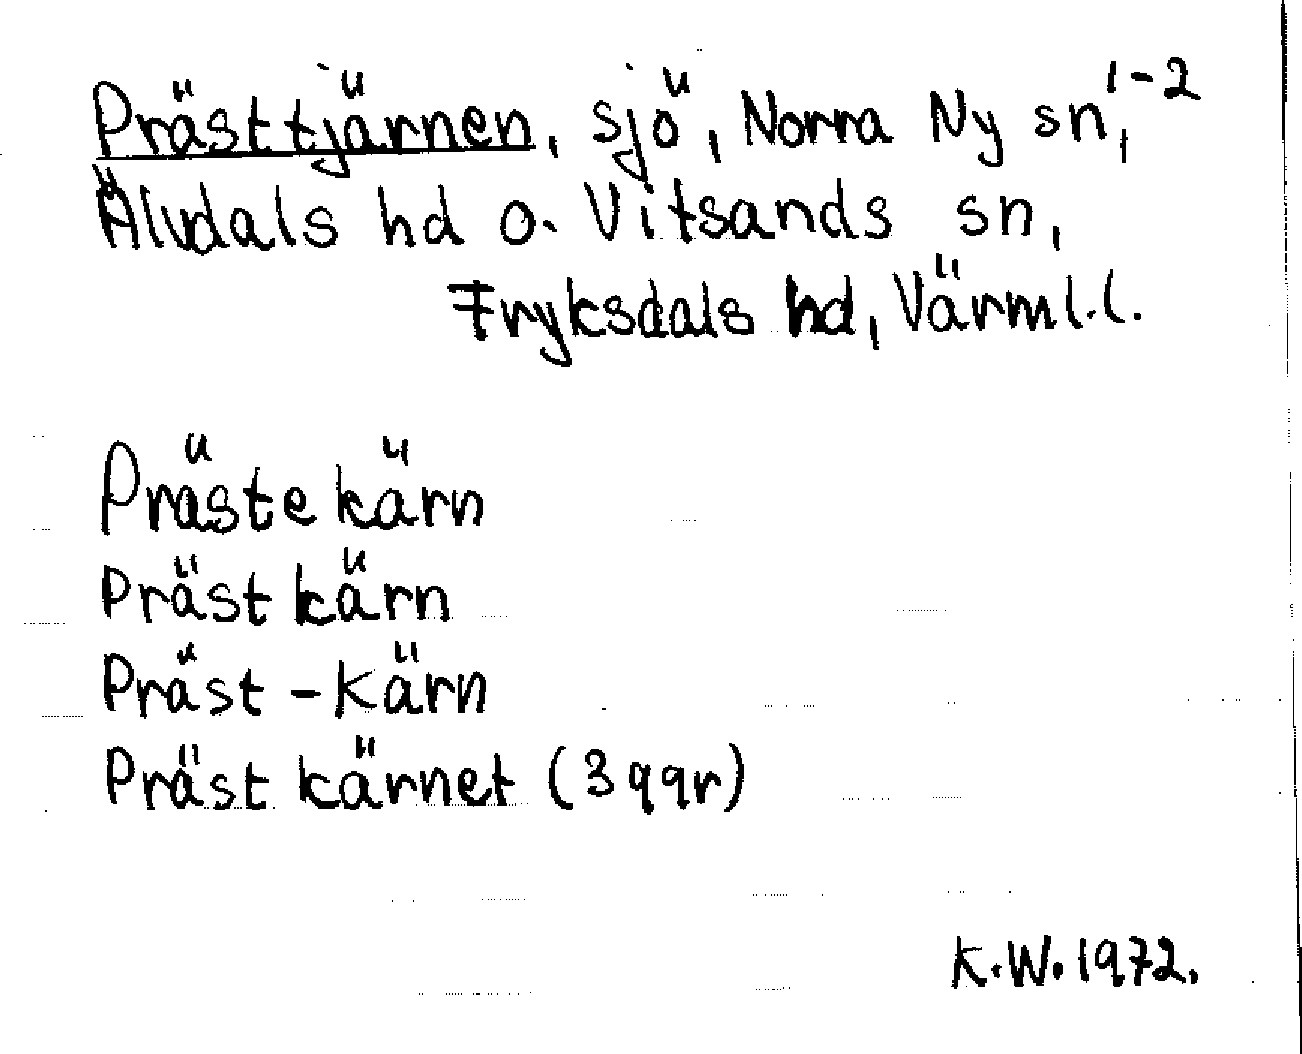 Prästtjärnen, sjö, Norra Ny sn, 1-2
Älvdals hd o. Vitsands sn,
Fryksdals hd, Värml.l.
Prästekärn
Prästkärn
Präst-Kärn
Prästkärnet (3 ggr)
K.W. 1972.